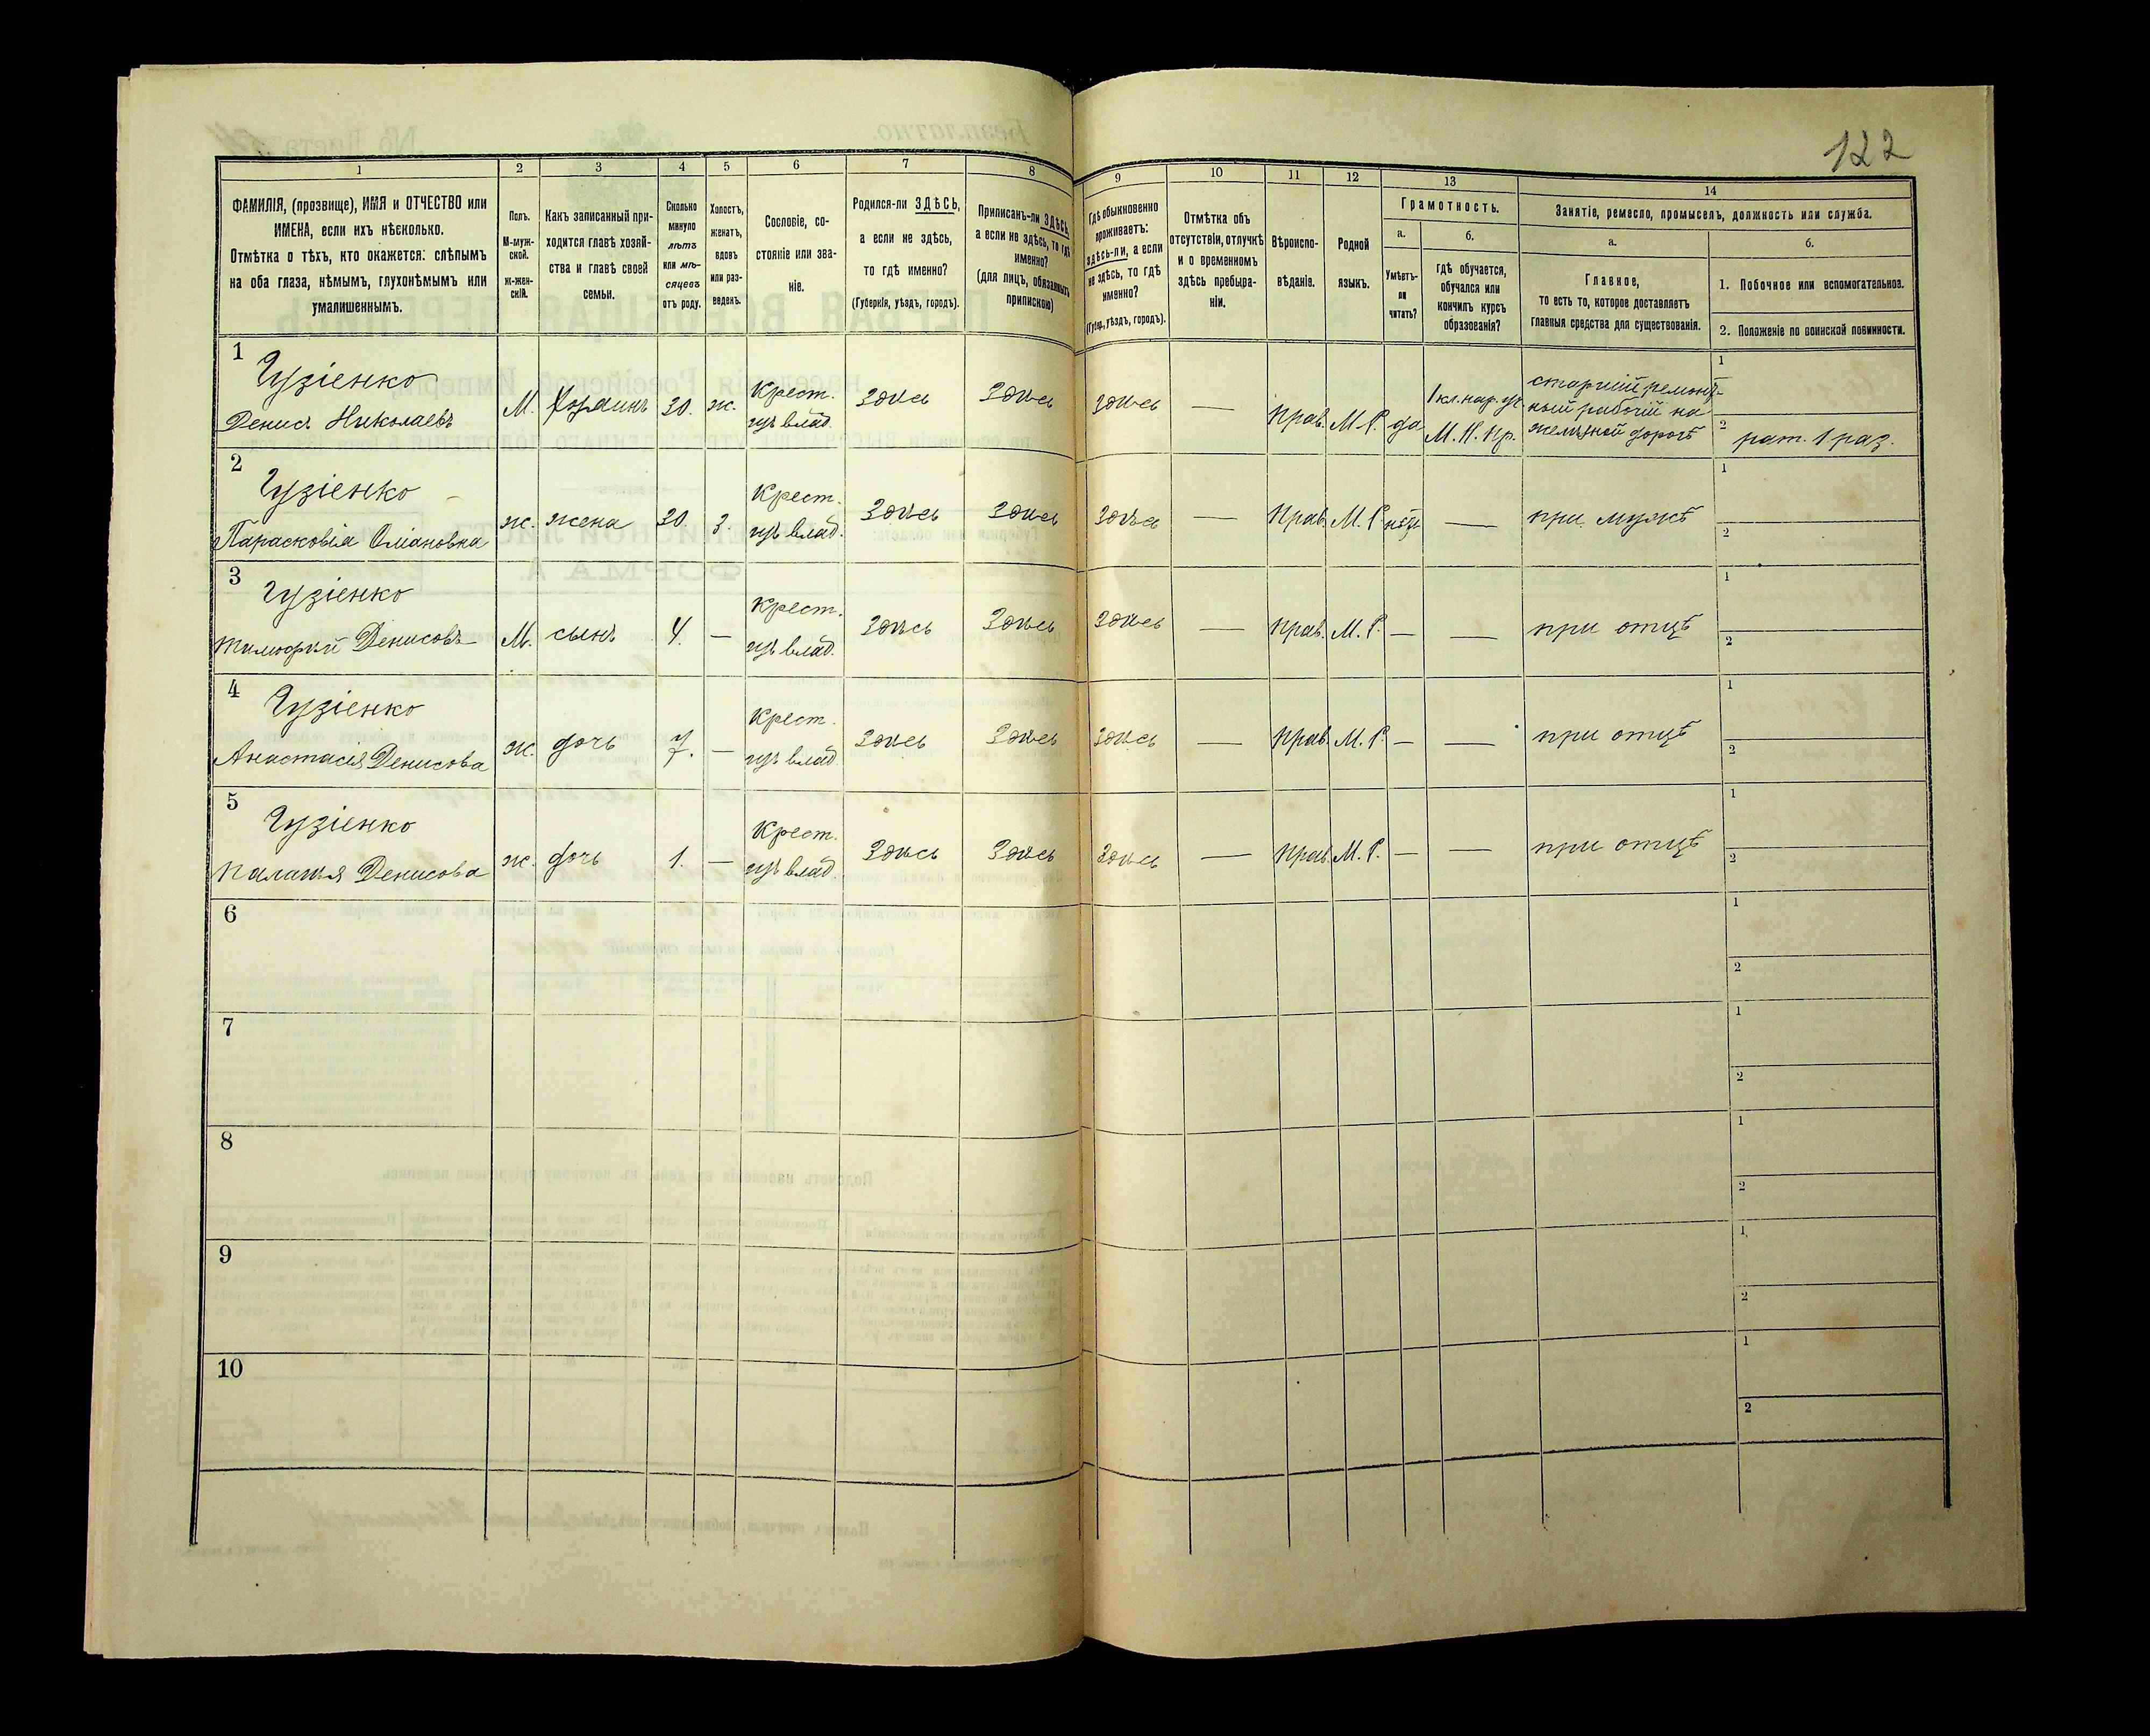 122
1 2 3 4 5 6 7 8 9 10 11 12 13 14
ФАМИЛІЯ, (прозвище), ИМЯ и ОТЧЕСТВО или
ИМЕНА, если ихъ нѣсколько.
Отмѣтка о тѣхъ, кто окажется: слѣпымъ
на оба глаза, нѣмымъ, глухонѣмымъ или
умалишеннымъ.
Полъ.
М-муж-
ской.
ж-жен-
скій.
Какъ записанный при-
ходится главѣ хозяй-
ства и главѣ своей
семьи.
Сколько
минуло
лѣтъ
или мѣ-
сяцевъ
отъ роду.
Холостъ,
женатъ,
вдовъ
или раз-
веденъ.
Сословіе, со-
стояніе или зва-
ніе.
Родился-ли ЗДѢСЬ,
а если не здѣсь,
то гдѣ именно?
(Губернія, уѣздъ, городъ).
Приписанъ-ли ЗДѢСЬ,
а если не здѣсь, то гдѣ
именно?
(для лицъ, обязанныхъ
припискою)
Гдѣ обыкновенно
проживаетъ:
здѣсь-ли, а если
не здѣсь, то гдѣ
именно?
(Губер., уѣздъ, городъ).
Отмѣтка объ
отсутствіи, отлучкѣ
и о временномъ
здѣсь пребыва-
ніи.
Вѣроиспо-
вѣданіе.
Родной
языкъ.
Грамотность.
а.
Умѣетъ-
ли
читать?
б.
гдѣ обучается,
обучался или
кончилъ курсъ
образованія?
Занятіе, ремесло, промыселъ, должность или служба.
а.
Главное,
то есть то, которое доставляетъ
главныя средства для существованія.
б.
1. Побочное или вспомогательное.
2. Положеніе по воинской повинности.
1
Гузіенко
Денисъ Николаевъ
М. хозяинъ 30. ж.
Крест.
изъ влад.
Здѣсь Здѣсь Здѣсь — Прав. М. Р. да
1 кл. нар. уч.
М. Н. Пр.
старшій ремонт-
ный рабочій на
желѣзной дорогѣ
1
2 рат. 1 раз.
2
Гузіенко
Парасковія
ж. жена 30. з.
Крест.
изъ влад.
Здѣсь Здѣсь Здѣсь — Прав. М. Р. нѣтъ — при мужѣ
1
2
3
Гузіенко
Тимофій Денисовъ
М. сынъ 4. —
Крест.
изъ влад.
Здѣсь Здѣсь Здѣсь — Прав. М. Р. — — при отцѣ
1
2
4
Гузіенко
Анастасія Денисова
ж. дочь 7. —
Крест.
изъ влад.
Здѣсь Здѣсь Здѣсь — Прав. М. Р. — — при отцѣ
1
2
5
Гузіенко
Палагія Денисова
ж. дочь 1. —
Крест.
изъ влад.
Здѣсь Здѣсь Здѣсь — Прав. М. Р. — — при отцѣ
1
2
6
1
2
7
1
2
8
1
2
9
1
2
10
1
2